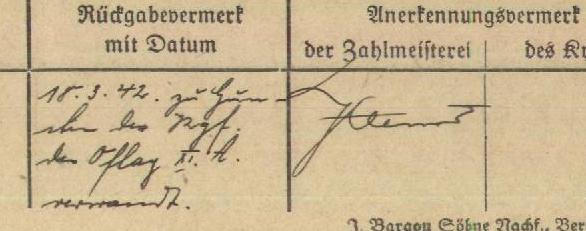 Rückgabevermerk
mit Datum
Anerkennungsvermerk
der Zahlmeisterei
des
18.3.42. zu Gun-
sten der Kgf.
des Oflag XI. A.
verwandt.
J. Bargou Söhne Nachf., Ber